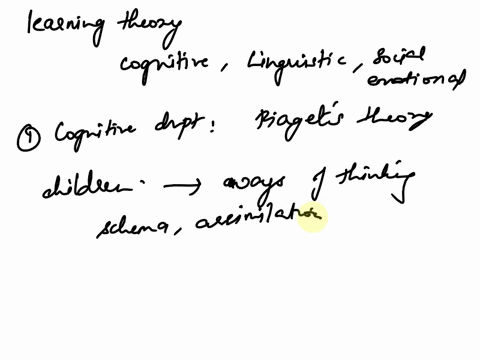 learning theory
cognitive, Linguistic, social
emotional
① Cognitive dvpt: Piaget's theory
children. → ways of thinking
schema, assimilation